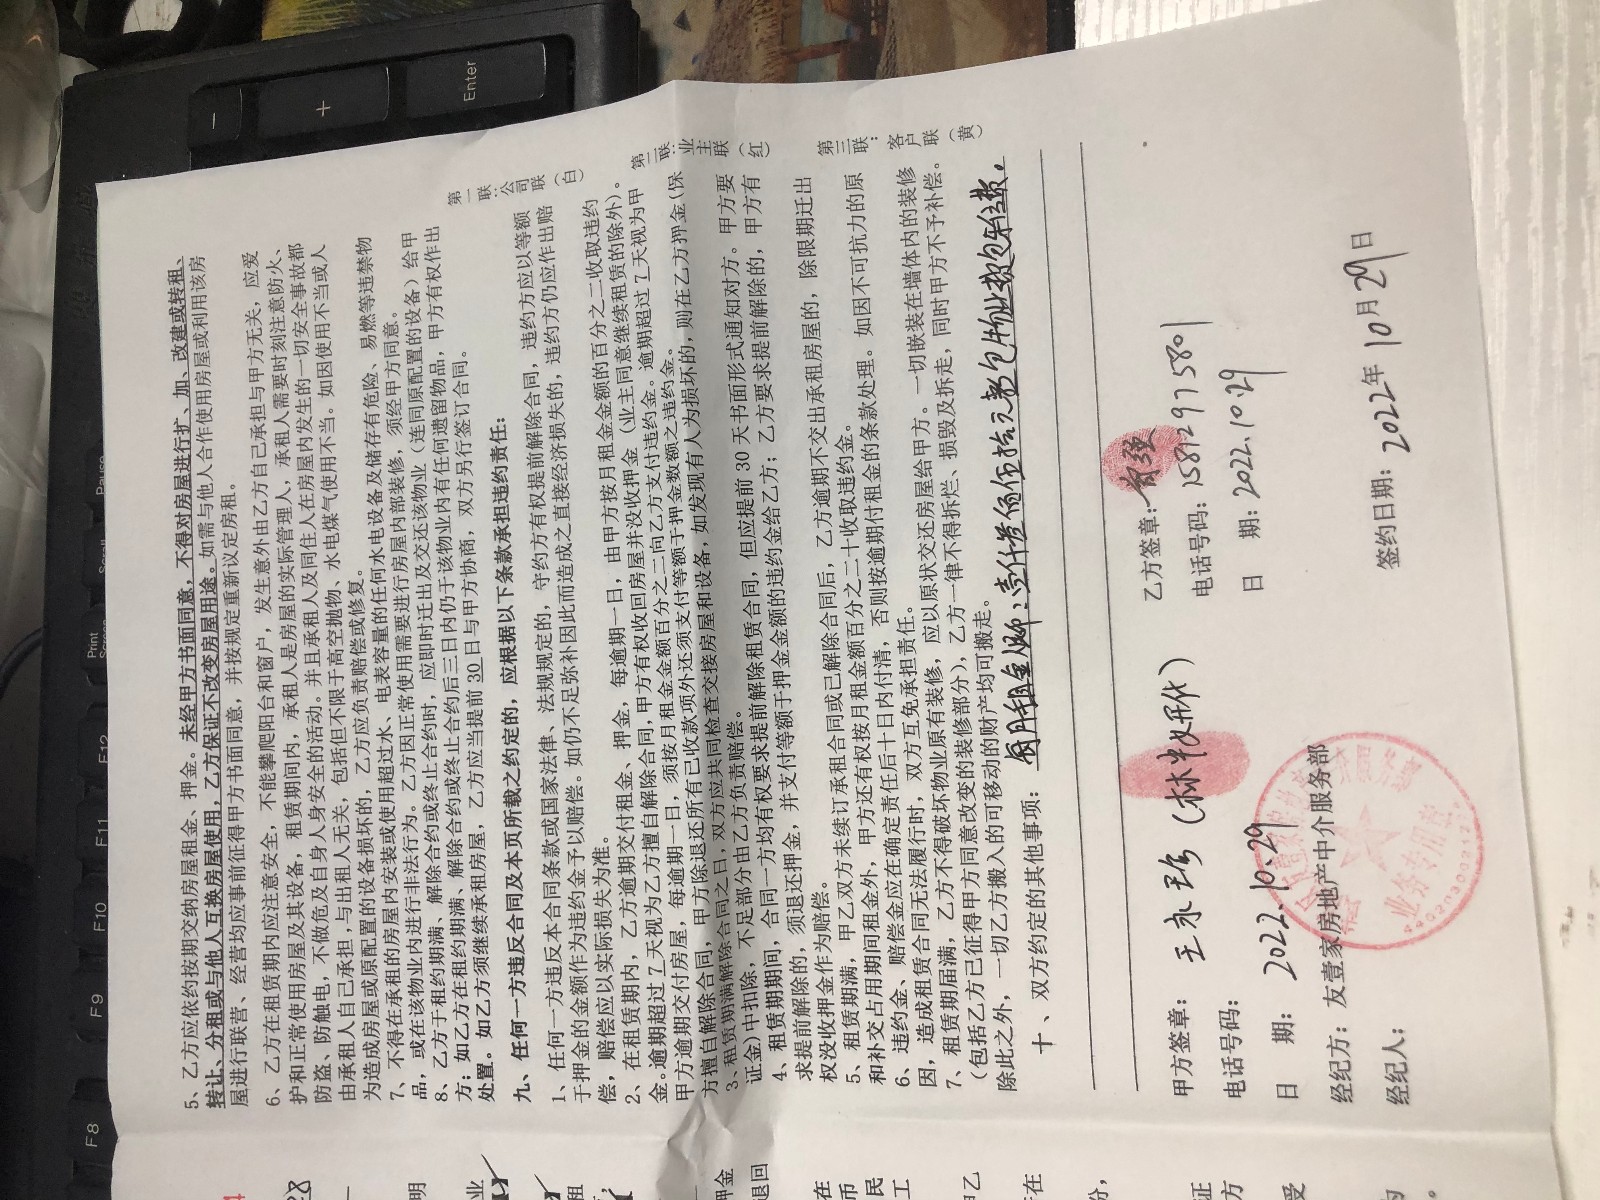 5、乙方应依约按期交纳房屋租金、押金。未经甲方书面同意，不得对房屋进行扩、加、改建或转租、
转让、分租或与他人互换房屋使用，乙方保证不改变房屋用途。如需与他人合作使用房屋或利用该房
屋进行联营、经营均应事前征得甲方书面同意，并按规定重新议定房租。
6、乙方在租赁期内应注意安全，不能攀爬阳台和窗户，发生意外由乙方自己承担与甲方无关，应爱
护和正常使用房屋及其设备，租赁期间内，承租人是房屋的实际管理人，承租人需要时刻注意防火、
防盗、防触电，不做危及自身人身安全的活动。并且承租人及同住人在房屋内发生的一切安全事故都
由承租人自己承担，与出租人无关，包括但不限于高空抛物、水电煤气使用不当。如因使用不当或人
为造成房屋或原配置的设备损坏的，乙方应负责赔偿或修复。
7、不得在承租的房屋内安装或使用超过水、电表容量的任何水电设备及储存有危险、易燃等违禁物
品，或在该物业内进行非法行为。乙方因正常使用需要进行房屋内部装修，须经甲方同意。
8、乙方于租约期满、解除合约或终止合约时，应即时迁出及交还该物业（连同原配置的设备）给甲
方；如乙方在租约期满、解除合约或终止合约后三日内仍于该物业内有任何遗留物品，甲方有权作出
处置。如乙方须继续承租房屋，乙方应当提前 30 日与甲方协商，双方另行签订合同。
九、任何一方违反合同及本页所载之约定的，应根据以下条款承担违约责任：
1、任何一方违反本合同条款或国家法律、法规规定的，守约方有权提前解除合同，违约方应以等额
于押金的金额作为违约金予以赔偿。如仍不足弥补因此而造成之直接经济损失的，违约方仍应作出赔
偿，赔偿应以实际损失为准。
2、在租赁期内，乙方逾期交付租金、押金，每逾期一日，由甲方按月租金金额的百分之二收取违约
金。逾期超过 7 天视为乙方擅自解除合同，甲方有权收回房屋并没收押金（业主同意继续租赁的除外）。
甲方逾期交付房屋，每逾期一日，须按月租金金额百分之二向乙方支付违约金。逾期超过 7 天视为甲
方擅自解除合同，甲方除退还所有已收款项外还须支付等额于押金数额之违约金。
3、租赁期满解除合同之日，双方应共同检查交接房屋和设备，如发现有人为损坏的，则在乙方押金（保
证金）中扣除，不足部分由乙方负责赔偿。
4、租赁期期间，合同一方均有权要求提前解除租赁合同，但应提前 30 天书面形式通知对方。甲方要
求提前解除的，须退还押金，并支付等额于押金金额的违约金给乙方；乙方要求提前解除的，甲方有
权没收押金作为赔偿。
5、租赁期满，甲乙双方未续订承租合同或已解除合同后，乙方逾期不交出承租房屋的，除限期迁出
和补交占用期间租金外，甲方还有权按月租金额百分之二十收取违约金。
6、违约金、赔偿金应在确定责任后十日内付清，否则按逾期付租金的条款处理。如因不可抗力的原
因，造成租赁合同无法履行时，双方互免承担责任。
7、租赁期届满，乙方不得破坏物业原有装修，应以原状交还房屋给甲方。一切嵌装在墙体内的装修
（包括乙方已征得甲方同意改变的装修部分），乙方一律不得拆烂、损毁及拆走，同时甲方不予补偿。
除此之外，一切乙方搬入的可移动的财产均可搬走。
十、双方约定的其他事项：每月租金人民币：壹仟柒佰伍拾元整包物业费包车位费.
第一联：公司联（白）
第二联：业主联（红）
第三联：客户联（黄）
甲方签章：王永珍
电话号码：
日 期：2022.10.29
经纪方：友壹家房地产中介服务部
经纪人：
乙方签章：
电话号码：15812971580
日 期：2022.10.29
签约日期：2022年 10月 29日
业务专用章
Enter
+
-
Pause
Print
F12
F11
F10
F9
F8